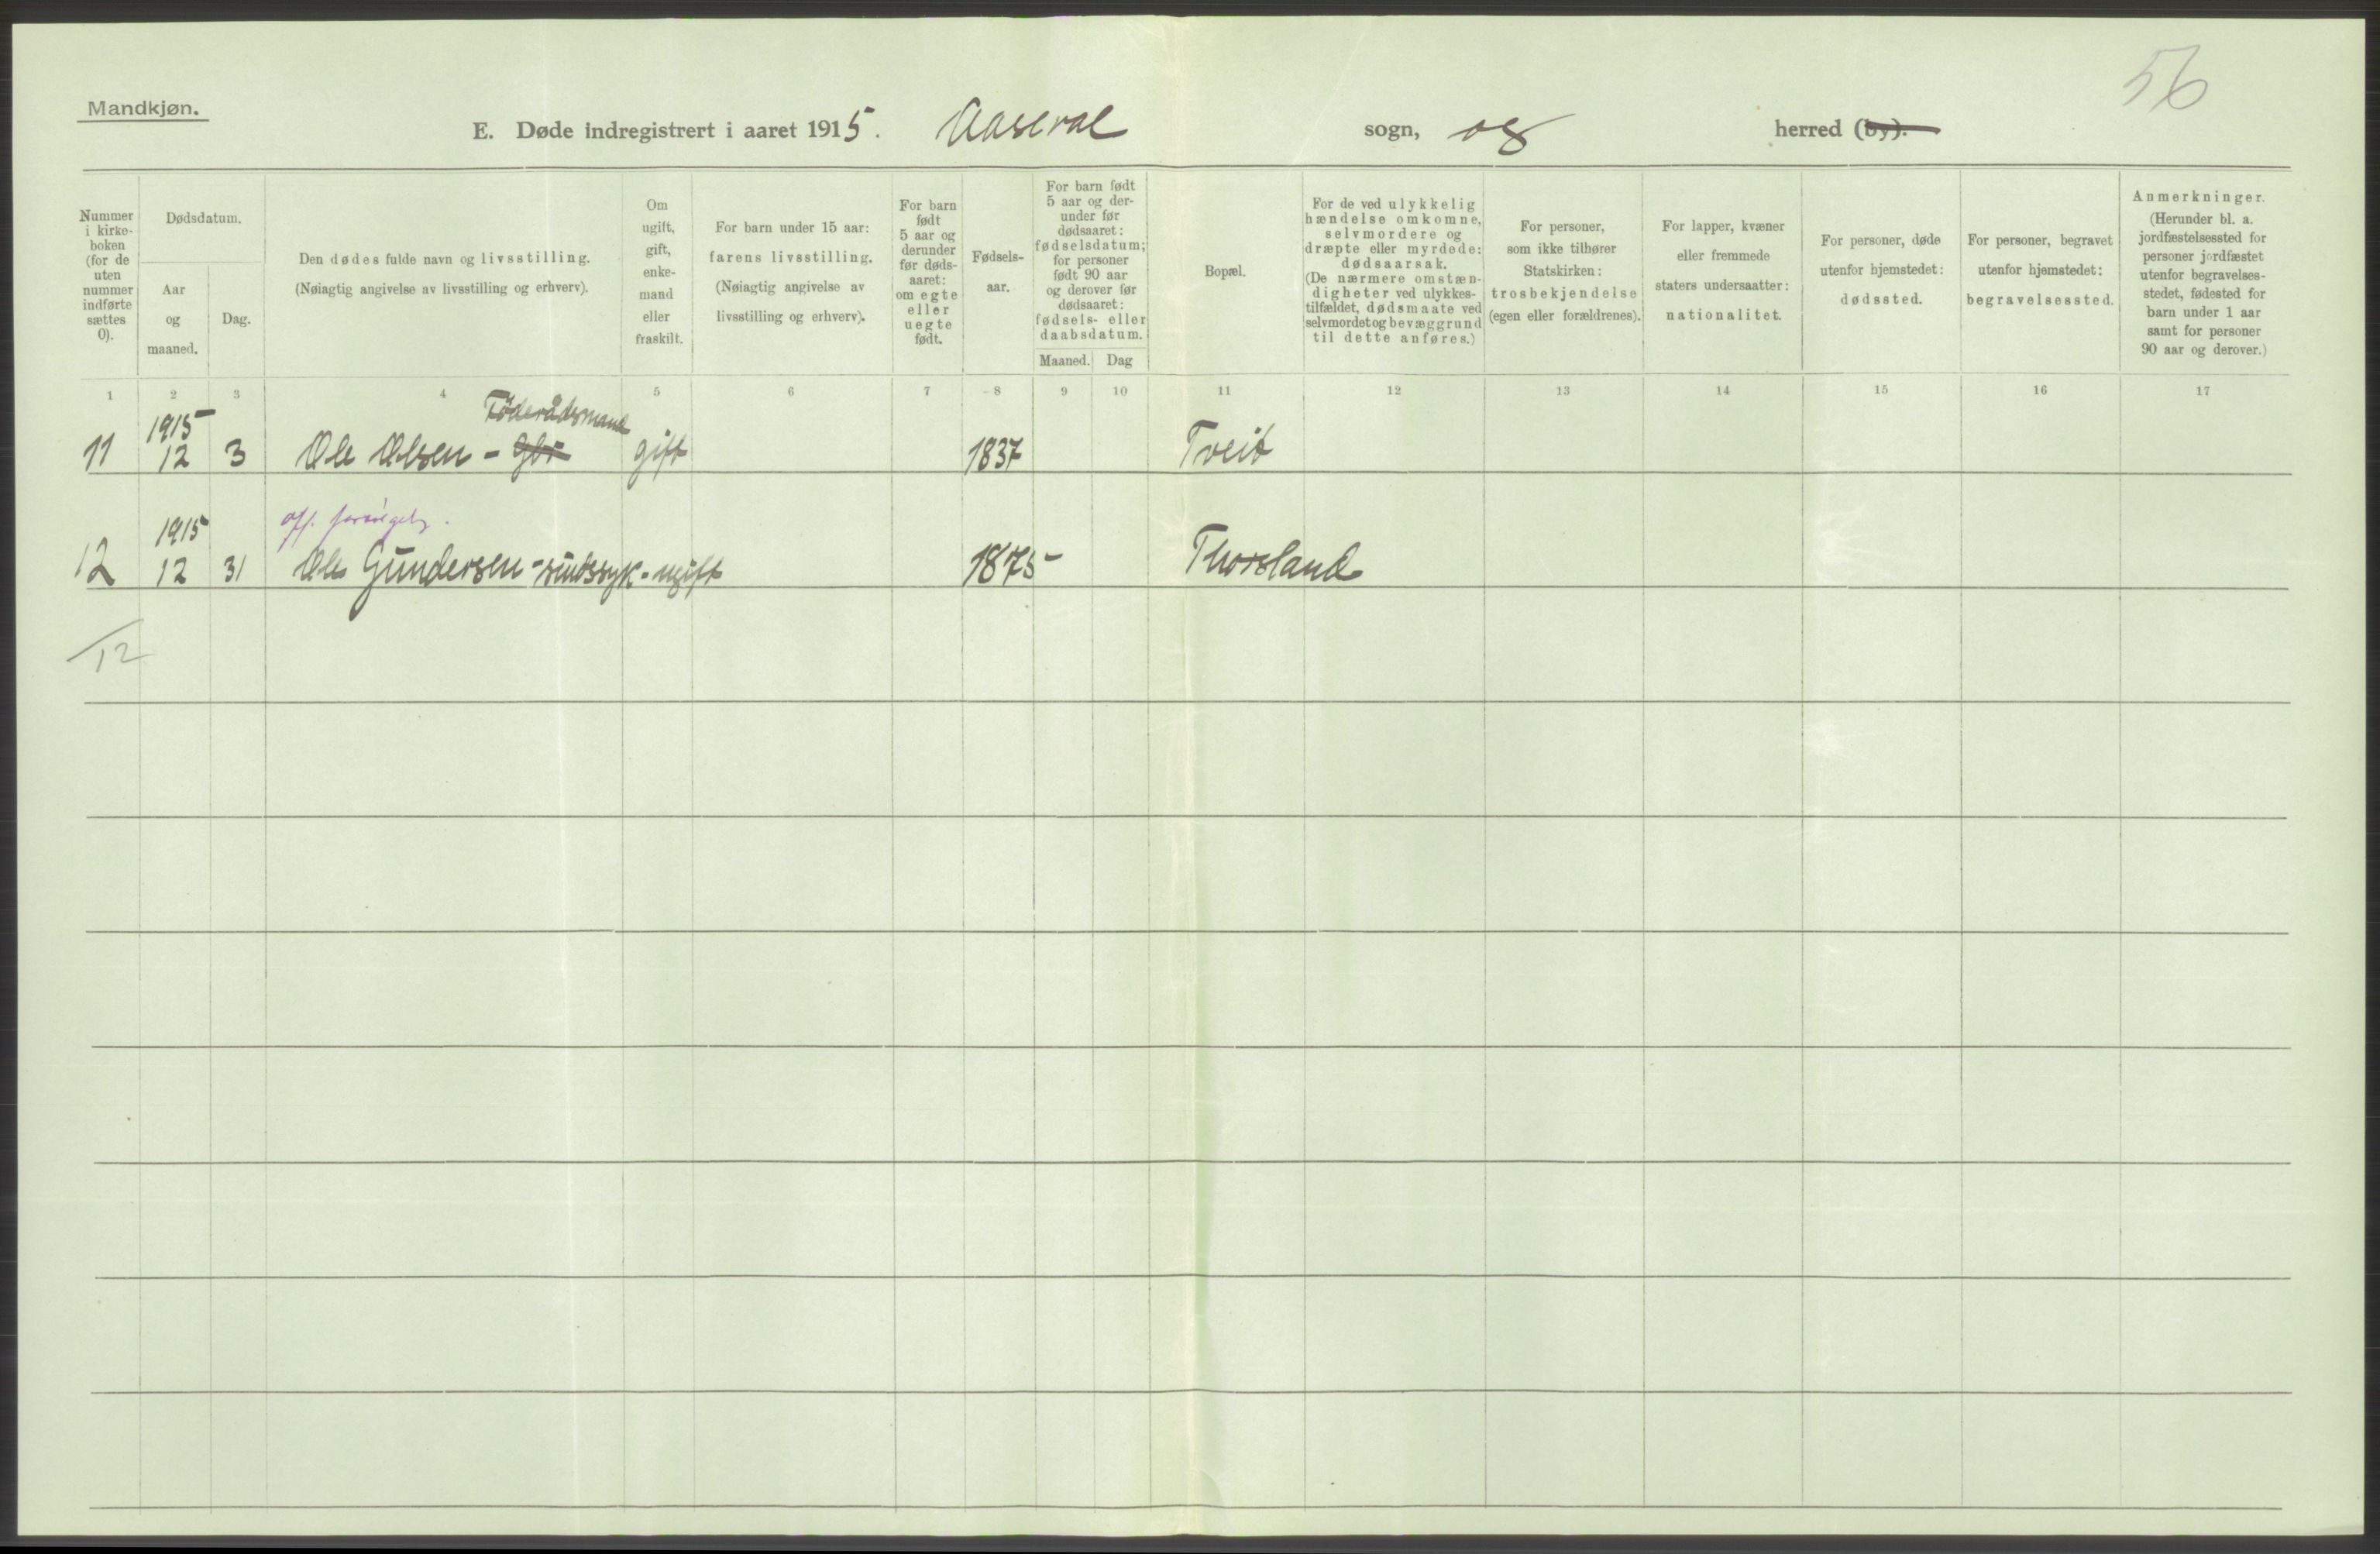 56
Mandkjøn.
E. Døde indregistrert i aaret 1915. Aaseral sogn, og herred (by).
Nummer i kirke-boken (for de uten nummer indførte sættes 0).
Dødsdatum.
Aar og maaned.
Dag.
Den dødes fulde navn og livsstilling.
(Nøiagtig angivelse av livsstilling og erhverv).
Om ugift, gift, enke-mand eller fraskilt.
For barn under 15 aar:
farens livsstilling.
(Nøiagtig angivelse av livsstilling og erhverv).
For barn født 5 aar og derunder før døds-aaret: om egte eller uegte født.
Fødsels-aar.
For barn født 5 aar og der-under før dødsaaret: fødselsdatum; for personer født 90 aar og derover før dødsaaret: fødsels- eller daabsdatum.
Maaned. Dag
Bopæl.
For de ved ulykkelig hændelse omkomne, selvmordere og dræpte eller myrdede: dødsaarsak.
(De nærmere omstæn-digheter ved ulykkes-tilfældet, dødsmaate ved selvmordet og bevæggrund til dette anføres.)
For personer, som ikke tilhører Statskirken: trosbekjendelse (egen eller forældrenes).
For lapper, kvæner eller fremmede staters undersaatter: nationalitet.
For personer, døde utenfor hjemstedet: dødssted.
For personer, begravet utenfor hjemstedet: begravelsessted.
Anmerkninger.
(Herunder bl. a. jordfæstelsessted for personer jordfæstet utenfor begravelses-stedet, fødested for barn under 1 aar samt for personer 90 aar og derover.)
1 2 3 4 5 6 7 8 9 10 11 12 13 14 15 16 17
1915 Föderådsmand
11 12 3 Ole Olsen - Gbr gift 1837 Tveit
1915 off. forsørget.
12 12 31 Ole Gundersen - sindssyk - ugift 1875 Thorsland
12